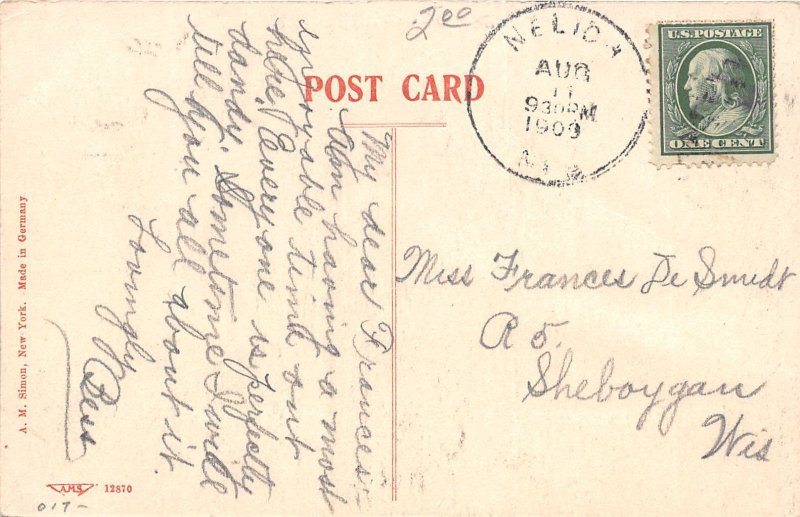 2.00
POST CARD
NELIGH
AUG
11
930PM
1909
U.S. POSTAGE
ONE CENT
My dear Frances:-
Am having a most
enjoyable time out
here. Everyone is perfectly
dandy. Sometime I will
tell you all about it.
Lovingly
Bess
Miss Frances De Smidt
R 5.
Sheboygan
Wis
A. M. Simon, New York. Made in Germany
A.M.S. 12870
017-